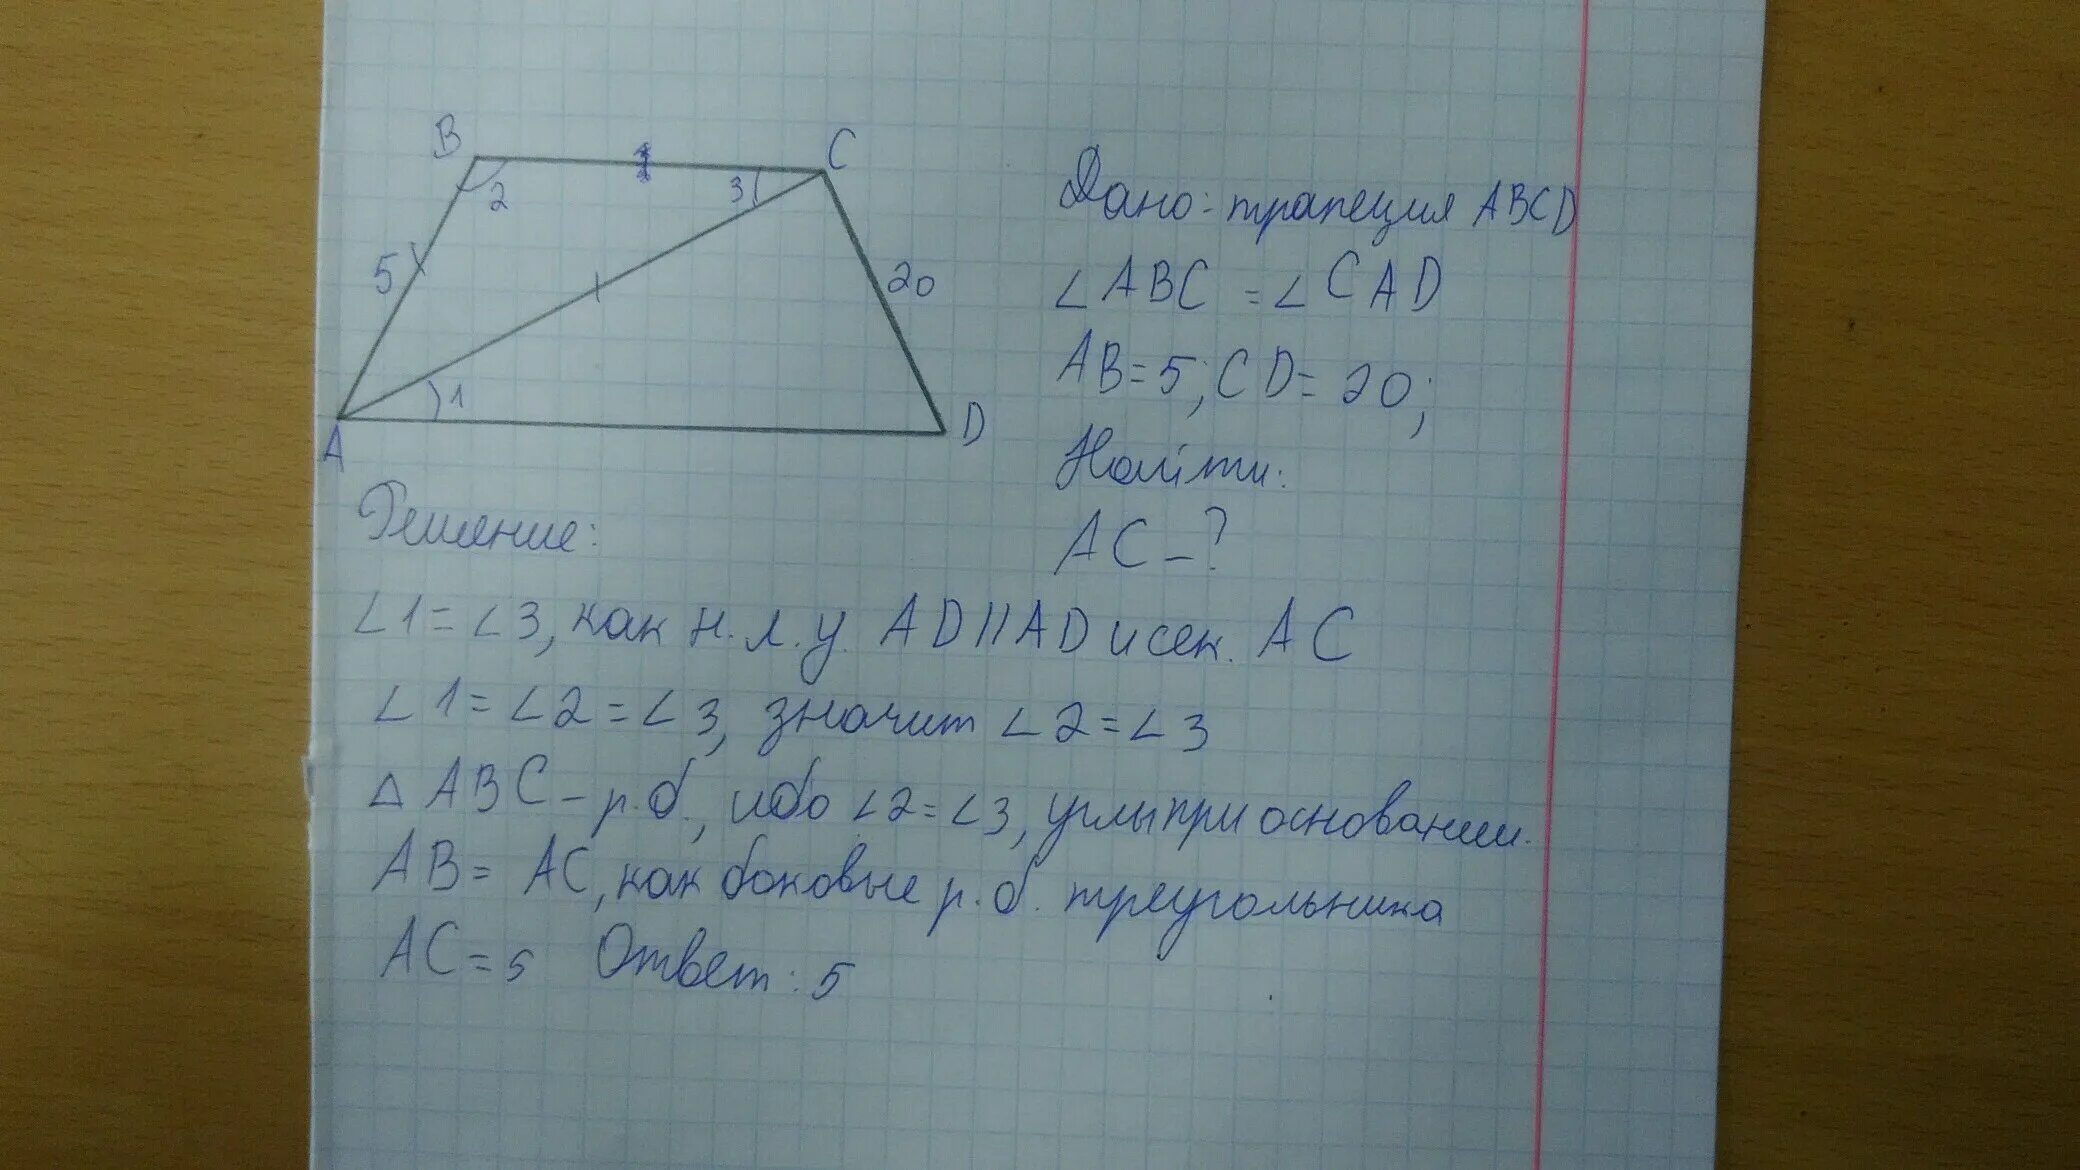 B C
2 3
5 20
1
A D
Дано: трапеция ABCD
∠ABC = ∠CAD
AB=5; CD=20;
Найти:
AC-?
Решение:
∠1=∠3, как н.л.у. AD||AD и сек. AC
∠1=∠2=∠3, значит ∠2=∠3
△ABC-р.б., ибо ∠2=∠3, углы при основании.
AB= AC, как боковые р.б. треугольника
AC=5 Ответ: 5